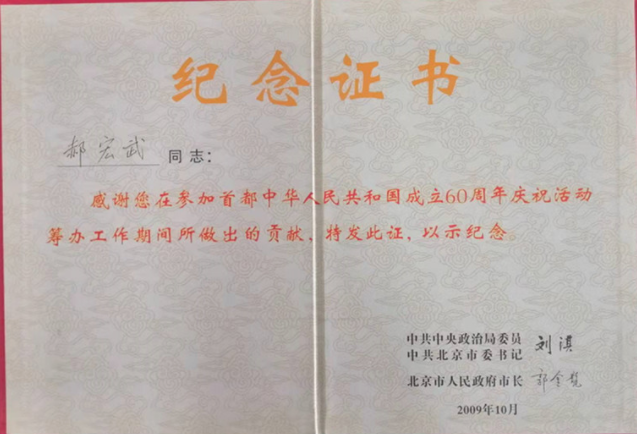 纪念证书
郝宏武 同志：
感谢您在参加首都中华人民共和国成立60周年庆祝活动
筹办工作期间所做出的贡献，特发此证，以示纪念。
中共中央政治局委员
中共北京市委书记 刘淇
北京市人民政府市长 郭金龙
2009年10月